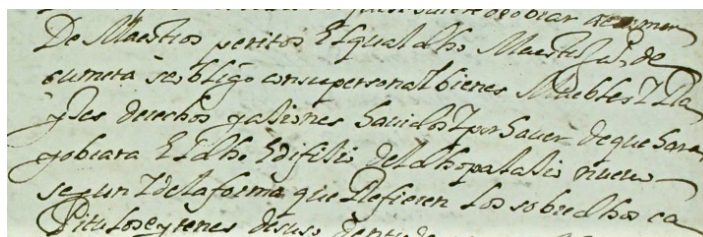 de obrar
De Maestros peritos El qual dho Maestro Ju.º de
cumeta se obligo con su persona Y bienes Muebles Y Ra
yses derechos y asiones havidos Y por haver de que hara
y obrara El dho Edifisio del dho palasio nuevo
segun Y de la forma que Refieren los sobredhos ca
Pitulos de suso